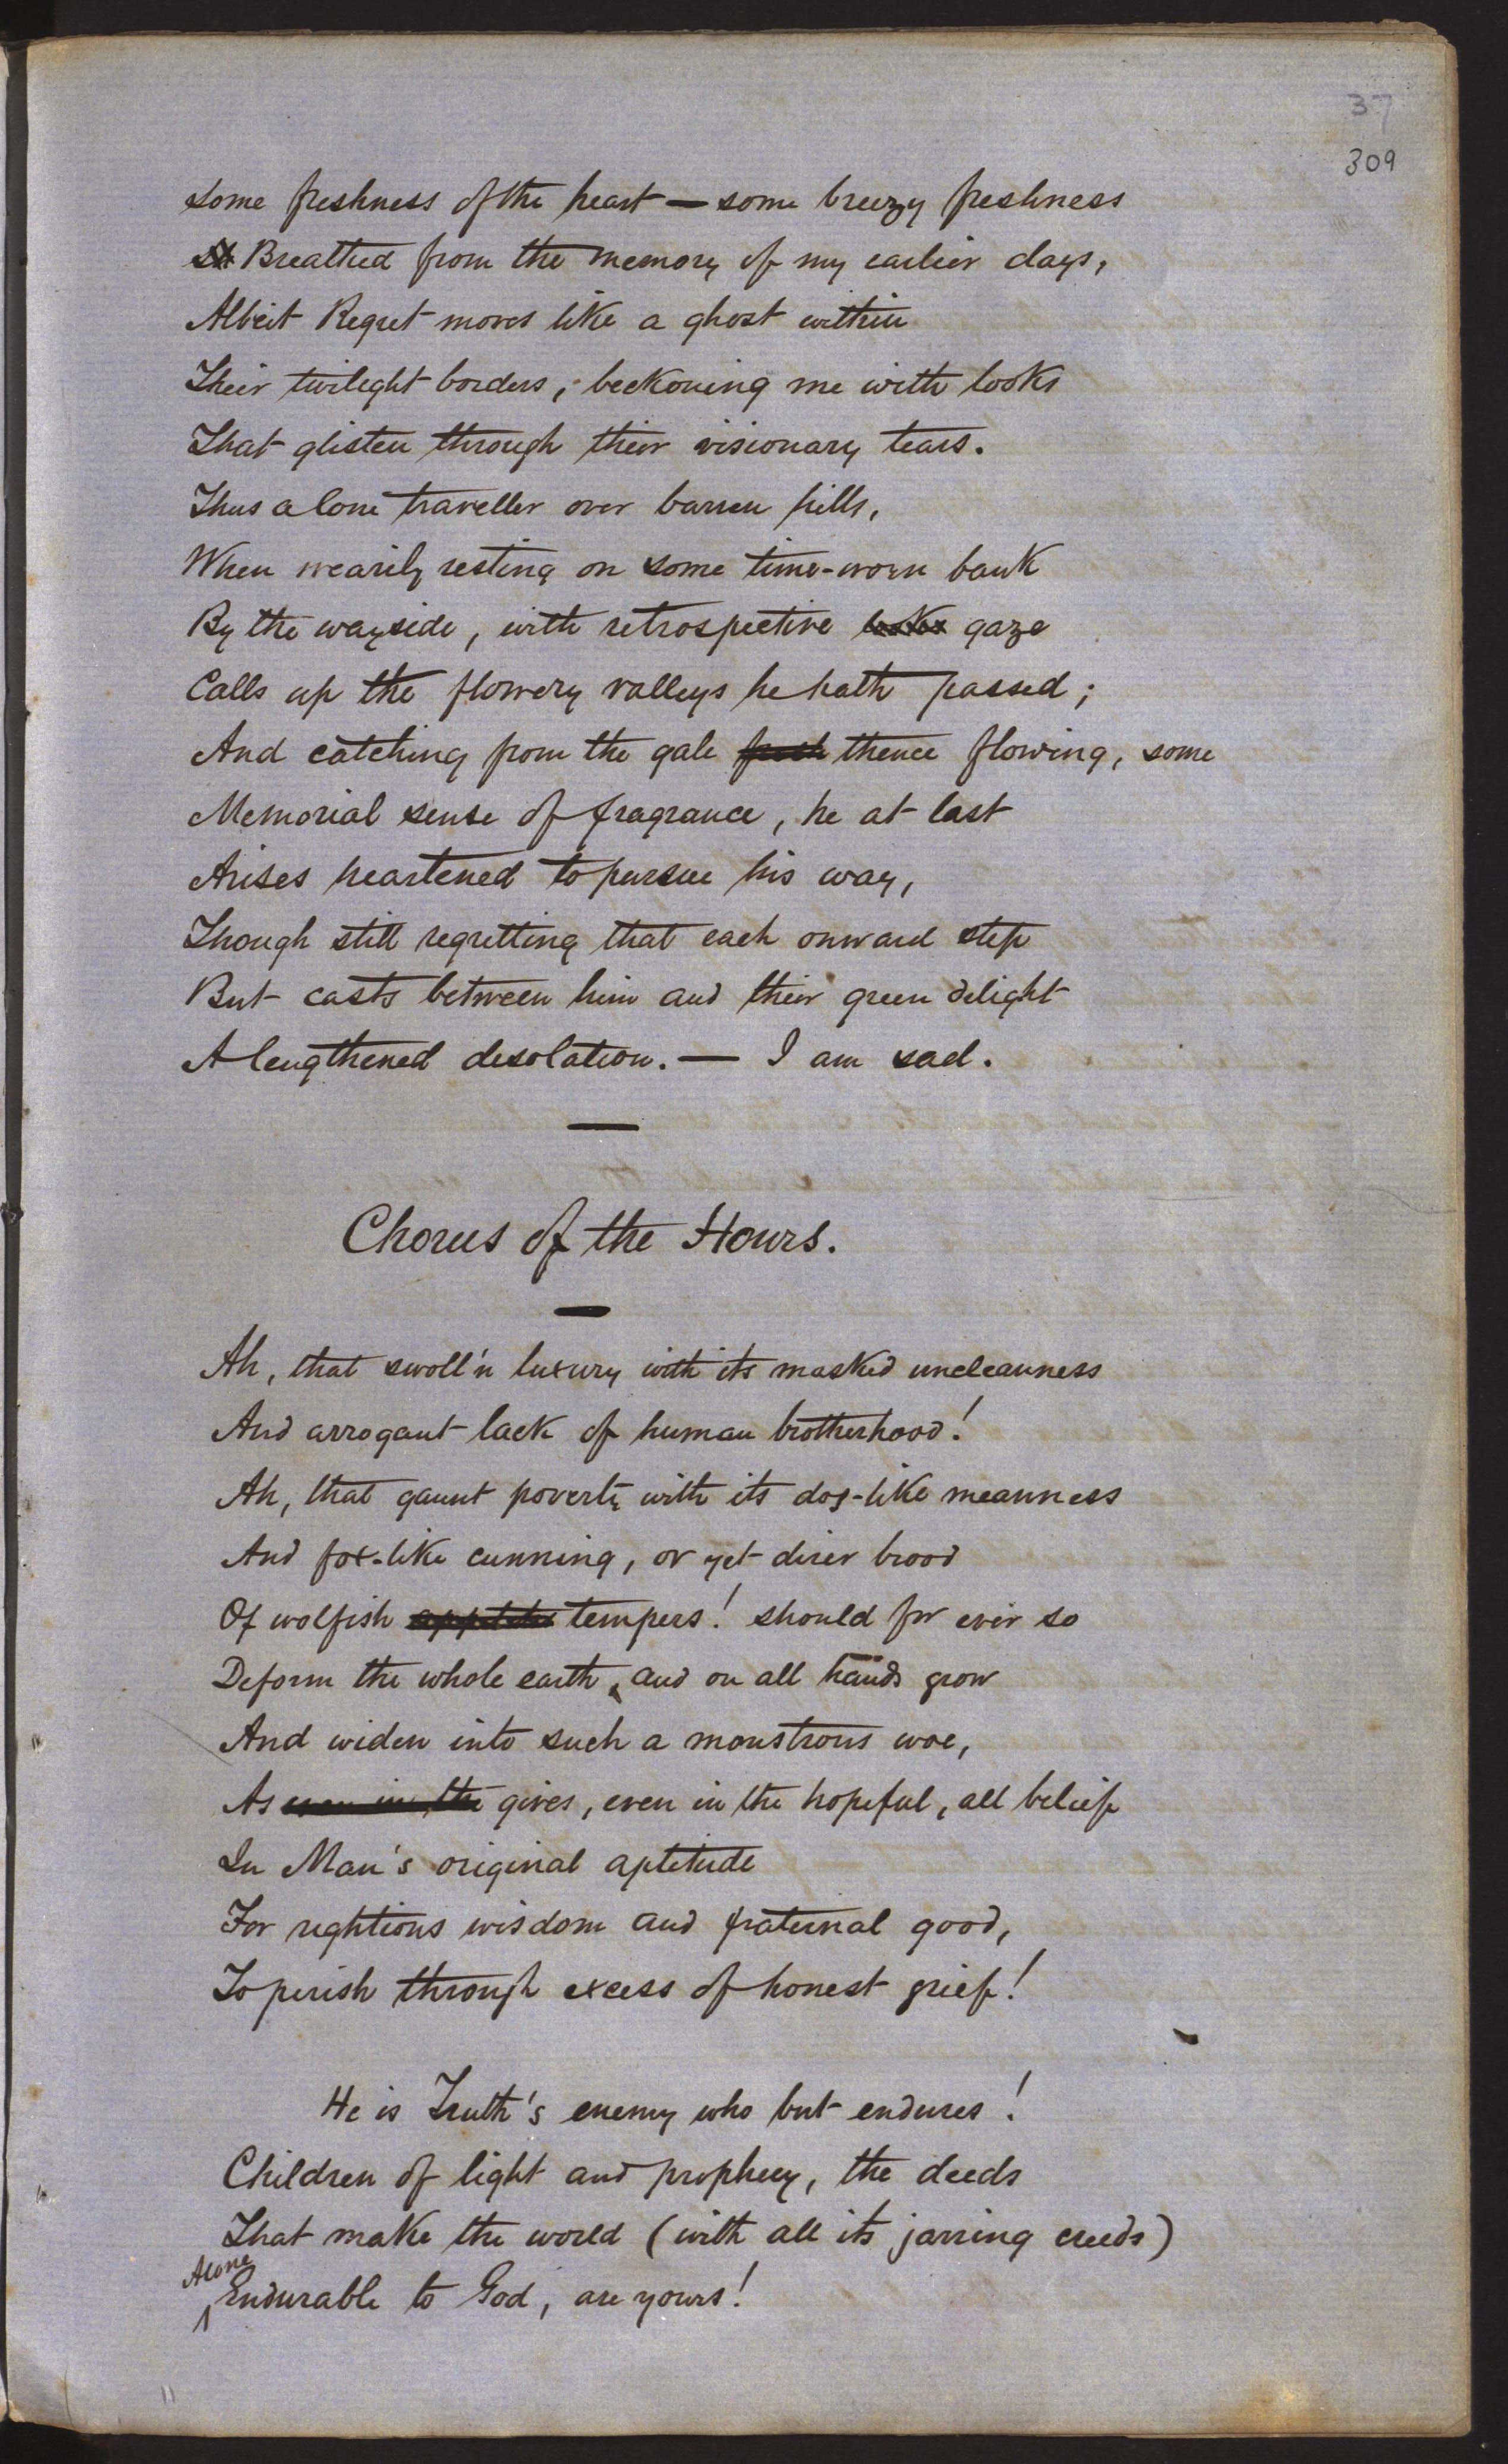 37
309
some freshness of the heart — some breezy freshness
Breathed from the memory of my earlier days,
Albeit Regret moves like a ghost within
Their twilight borders, beckoning me with looks
That glisten through their visionary tears.
Thus a lone traveller over barren hills,
When wearily resting on some time-worn bank
By the wayside, with retrospective looks gaze
Calls up the flowery valleys he hath passed;
And catching from the gale fresh thence flowing, some
Memorial sense of fragrance, he at last
Arises heartened to pursue his way,
Though still regretting that each onward step
But casts between him and their green delight
A lengthened desolation. — I am sad.
Chorus of the Hours.
Ah, that swoll'n luxury with its masked uncleanness
And arrogant lack of human brotherhood!
Ah, that gaunt poverty with its dog-like meanness
And fox-like cunning, or yet direr brood
Of wolfish appetites tempers! should for ever so
Deform the whole earth, and on all hands grow
And widen into such a monstrous woe,
As even in the gives, even in the hopeful, all belief
In Man's original aptitude
For rightious wisdom and fraternal good,
To perish through excess of honest grief!
He is Truth's enemy who but endures!
Children of light and prophecy, the deeds
That make the world (with all its jarring creeds)
Alone
Endurable to God, are yours!